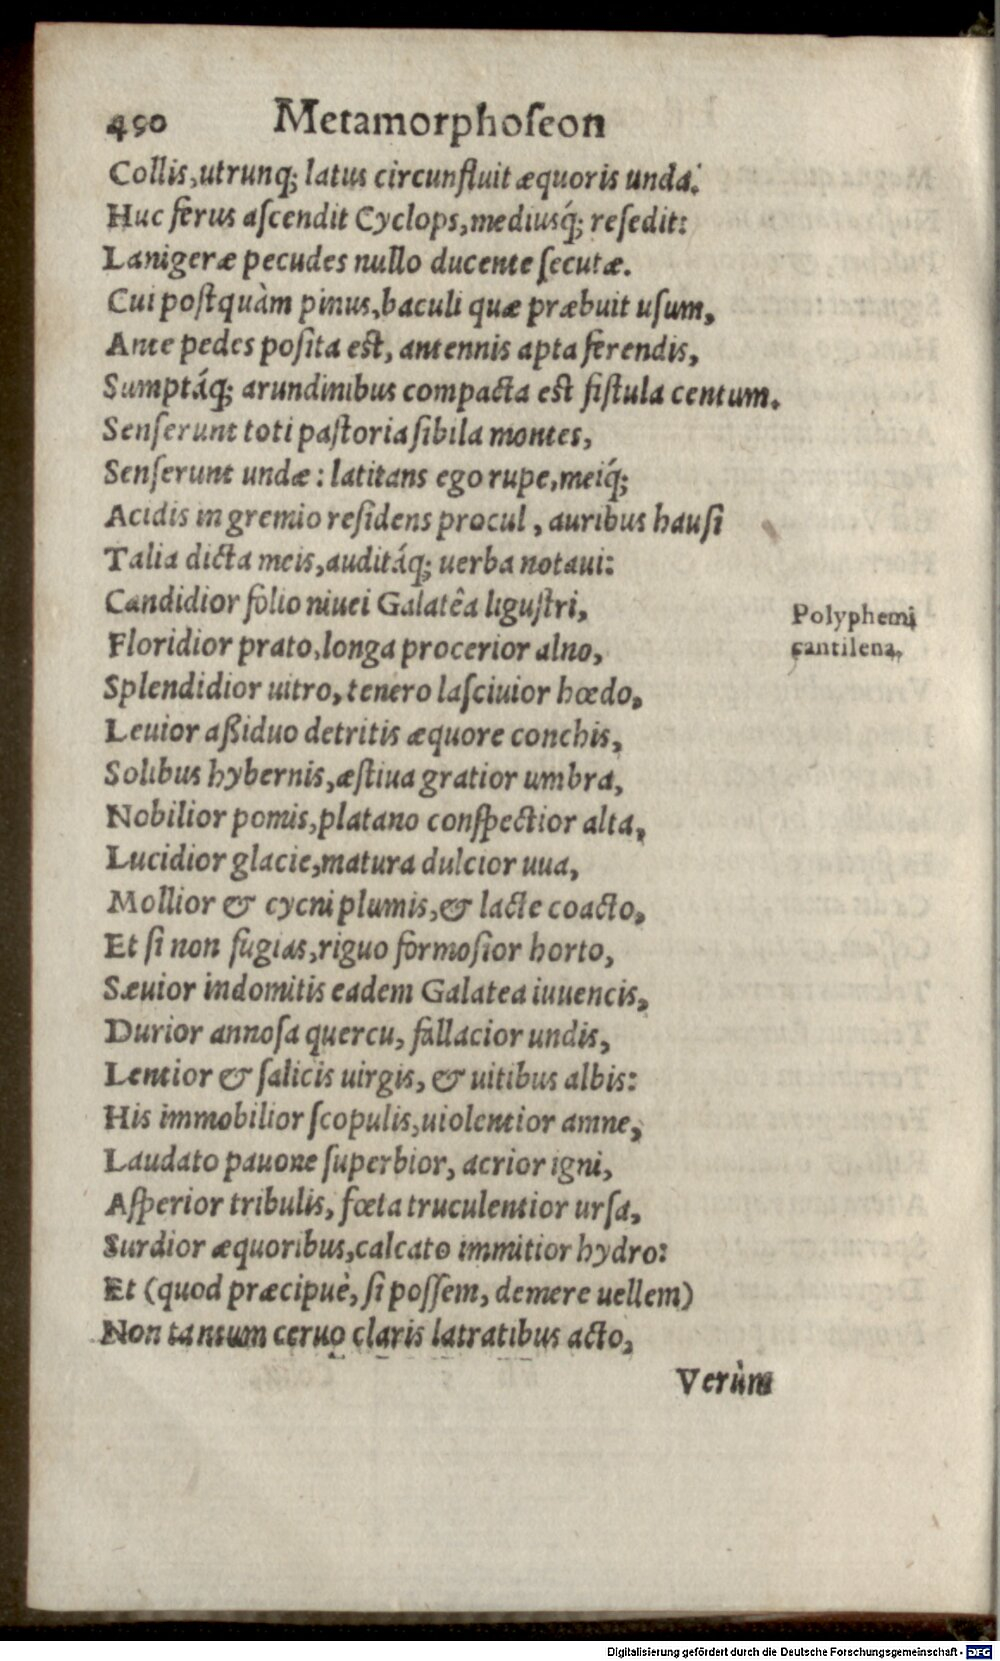 490 Metamorphoſeon
Collis,utrunq; latus circunfluit æquoris unda.
Huc ferus aſcendit Cyclops,mediusq́; reſedit:
Lanigeræ pecudes nullo ducente ſecutæ.
Cui poſtquàm pinus,baculi quæ præbuit uſum,
Ante pedes poſita eſt, antennis apta ferendis,
Sumptáq; arundinibus compacta eſt fiſtula centum.
Senſerunt toti paſtoria ſibila montes,
Senſerunt undæ: latitans ego rupe,meiq́;
Acidis in gremio reſidens procul, auribus hauſi
Talia dicta meis,auditáq; uerba notaui:
Candidior folio niuei Galatêa liguſtri,
Polyphemi
cantilena.
Floridior prato,longa procerior alno,
Splendidior uitro, tenero laſciuior hœdo,
Leuior aßiduo detritis æquore conchis,
Solibus hybernis,æſtiua gratior umbra,
Nobilior pomis,platano conſpectior alta,
Lucidior glacie,matura dulcior uua,
Mollior & cycni plumis,& lacte coacto,
Et ſi non fugias,riguo formoſior horto,
Sæuior indomitis eadem Galatea iuuencis,
Durior annoſa quercu, fallacior undis,
Lentior & ſalicis uirgis, & uitibus albis:
His immobilior ſcopulis,uiolentior amne,
Laudato pauone ſuperbior, acrior igni,
Aſperior tribulis, fœta truculentior urſa,
Surdior æquoribus,calcato immitior hydro:
Et (quod præcipuè, ſi poſſem, demere uellem)
Non tantum ceruo claris latratibus acto,
Verùm
Digitalisierung gefördert durch die Deutsche Forschungsgemeinschaft - DFG